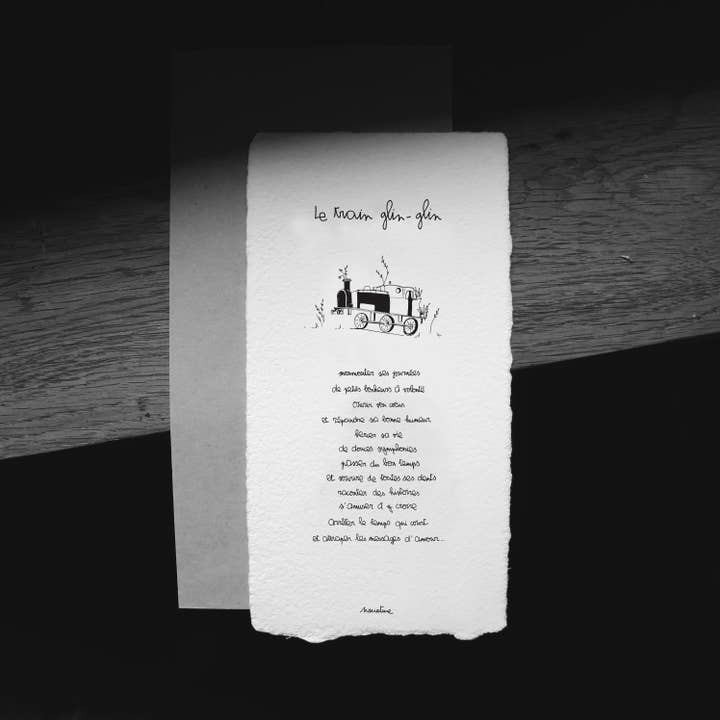 Le train glin-glin
ses journées
de petits bonheurs à volonté
Ouvrir son cœur
et répandre sa bonne humeur
sa vie
de douces symphonies
passer du bon temps
et sourire de toutes ses dents
raconter des histoires
s'amuser à y croire
Arrêter le temps qui court
et attraper les messages d'amour...